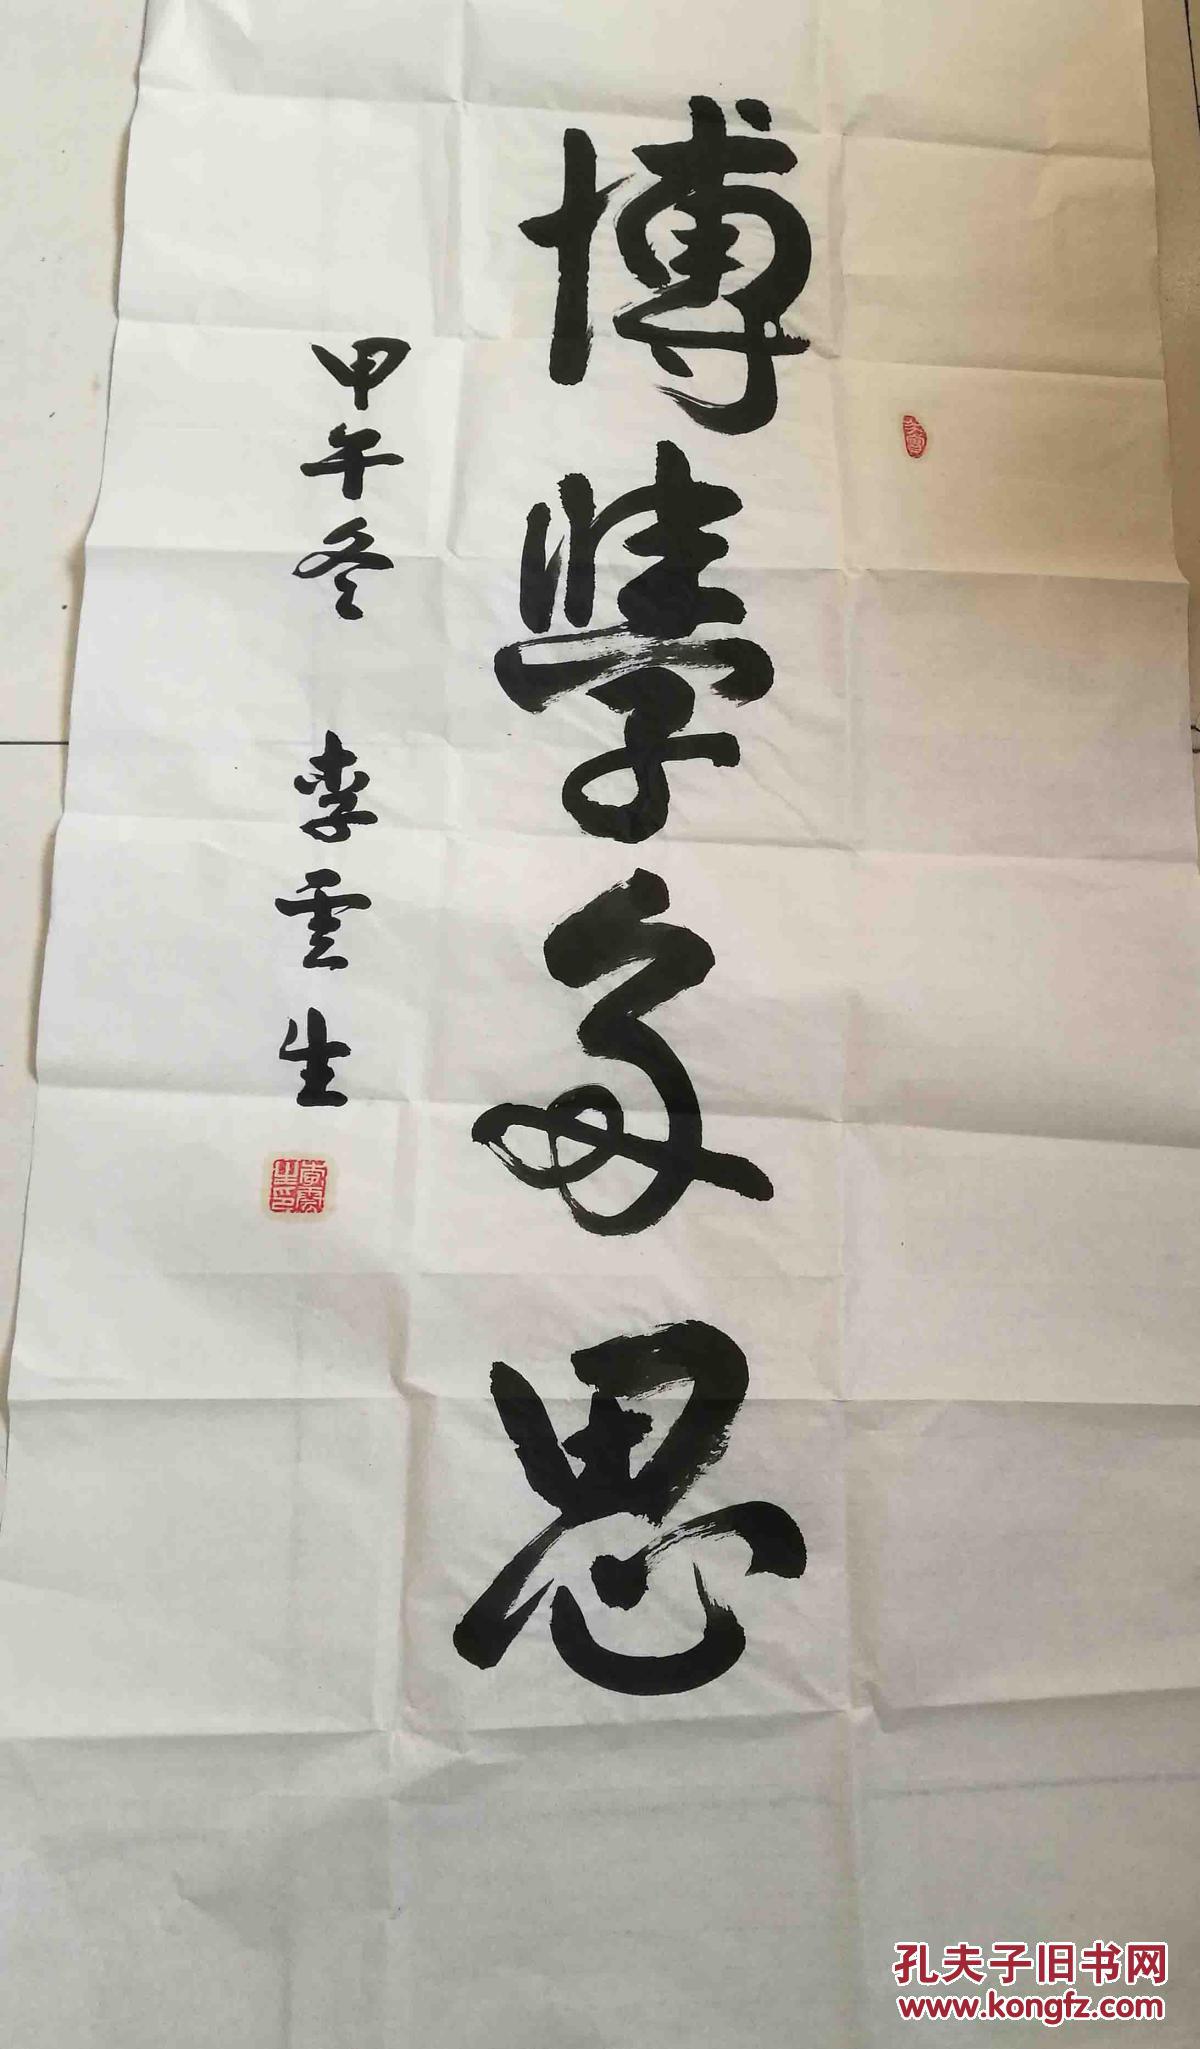 博學多思
甲午冬 李雲生
李雲生印
孔夫子旧书网
www.kongfz.com